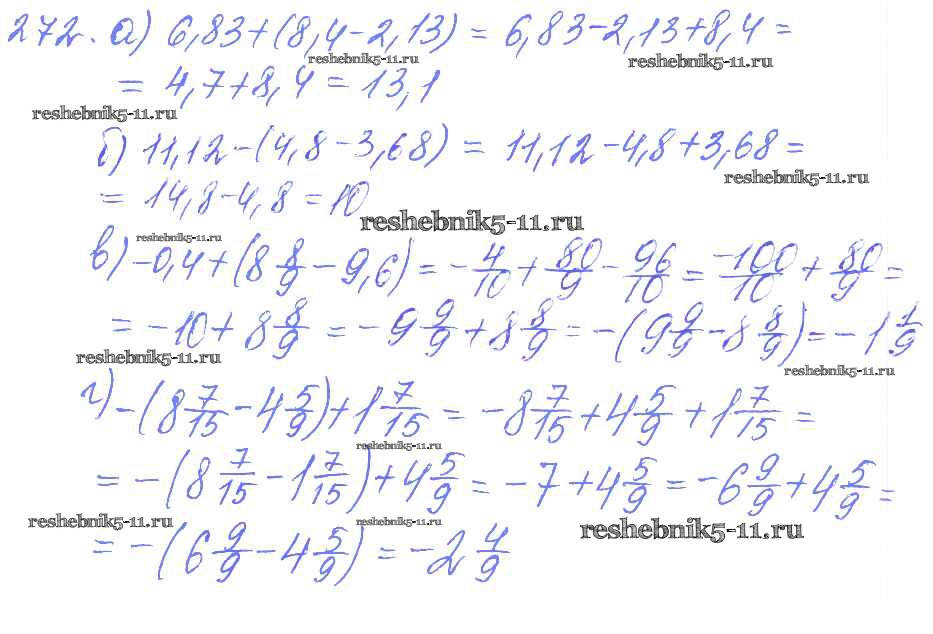 272. а) 6,83+(8,4-2,13) = 6,83-2,13+8,4 =
reshebnik5-11.ru reshebnik5-11.ru
= 4,7+8,4 = 13,1
reshebnik5-11.ru
б) 11,12-(4,8-3,68) = 11,12-4,8+3,68 =
reshebnik5-11.ru
= 14,8-4,8 = 10
reshebnik5-11.ru
reshebnik5-11.ru
в) -0,4+(8 8/9 - 9,6) = -4/10 + 80/9 - 96/10 = -100/10 + 80/9 =
= -10 + 8 8/9 = -9 9/9 + 8 8/9 = -(9 9/9 - 8 8/9) = -1 1/9
reshebnik5-11.ru reshebnik5-11.ru
г) -(8 7/15 - 4 5/9) + 1 7/15 = -8 7/15 + 4 5/9 + 1 7/15 =
reshebnik5-11.ru
= -(8 7/15 - 1 7/15) + 4 5/9 = -7 + 4 5/9 = -6 9/9 + 4 5/9 =
reshebnik5-11.ru reshebnik5-11.ru reshebnik5-11.ru
= -(6 9/9 - 4 5/9) = -2 4/9